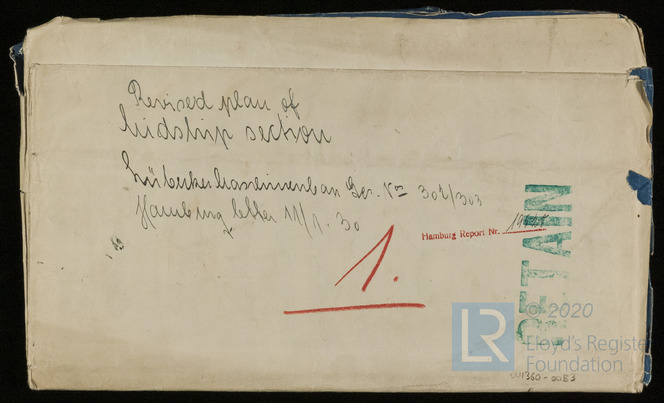 Revised plan of
Midship section
Lübecker Maschinenbau Ges. Nos 302/303
Hamburg letter 11/1.30
Hamburg Report Nr.
1.
RETAIN
© 2020
LR
Lloyd's Register
Foundation